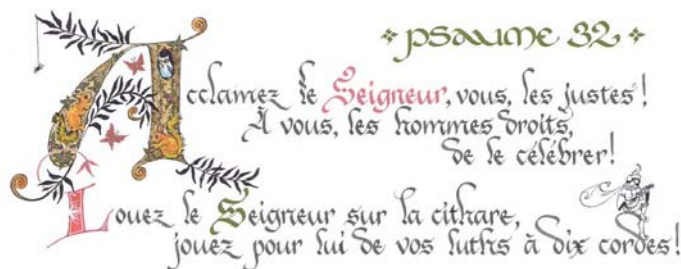 psaume 32
Acclamez le Seigneur, vous, les justes !
À vous, les hommes droits,
de le célébrer !
Louez le Seigneur sur la cithare,
jouez pour lui de vos luths à dix cordes !